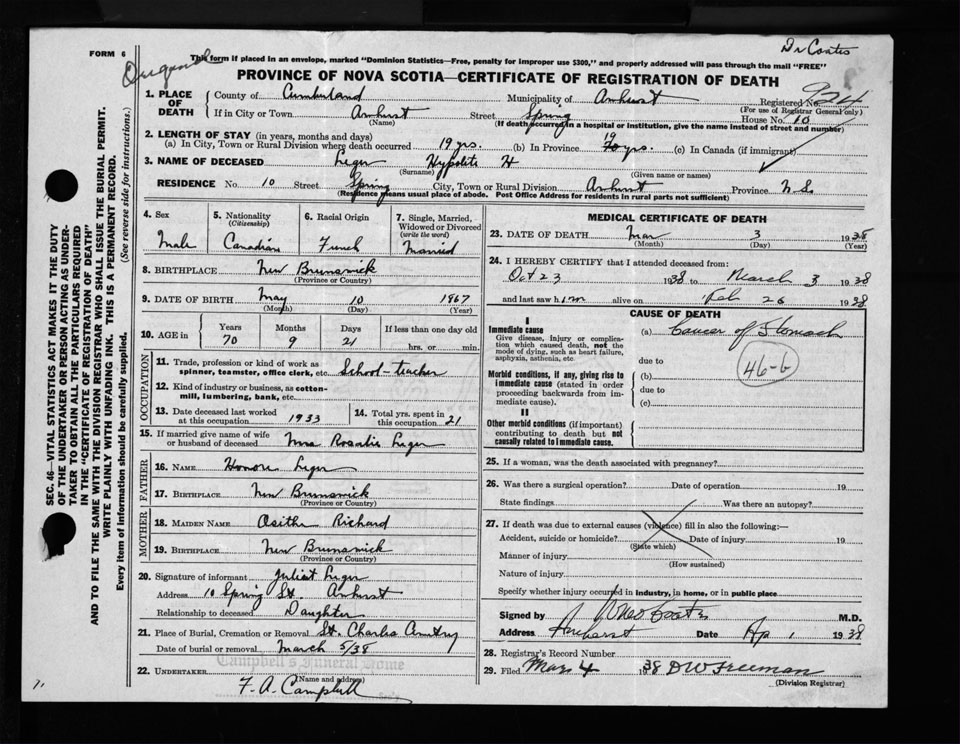 Dr Coates
FORM 6
This form if placed in an envelope, marked "Dominion Statistics—Free, penalty for improper use $300," and properly addressed will pass through the mail "FREE"
PROVINCE OF NOVA SCOTIA—CERTIFICATE OF REGISTRATION OF DEATH
1. PLACE OF DEATH
County of Cumberland Municipality of Amherst Registered No. 924
(For use of Registrar General only)
If in City or Town Amherst Street Spring House No. 10
(Name) (If death occurred in a hospital or institution, give the name instead of street and number)
2. LENGTH OF STAY (in years, months and days)
(a) In City, Town or Rural Division where death occurred 19 yrs. (b) In Province 19 yrs. (c) In Canada (if immigrant)
3. NAME OF DECEASED Leger Hypolite H
(Surname) (Given name or names)
RESIDENCE No. 10 Street Spring City, Town or Rural Division Amherst Province N.S.
(Residence means usual place of abode. Post Office Address for residents in rural parts not sufficient)
SEC. 46—VITAL STATISTICS ACT MAKES IT THE DUTY
OF THE UNDERTAKER OR PERSON ACTING AS UNDER-
TAKER TO OBTAIN ALL THE PARTICULARS REQUIRED
IN THE "CERTIFICATE OF REGISTRATION OF DEATH"
AND TO FILE THE SAME WITH THE DIVISION REGISTRAR WHO SHALL ISSUE THE BURIAL PERMIT.
WRITE PLAINLY WITH UNFADING INK. THIS IS A PERMANENT RECORD.
Every item of information should be carefully supplied. (See reverse side for instructions.)
4. Sex
Male
5. Nationality
(Citizenship)
Canadian
6. Racial Origin
French
7. Single, Married, Widowed or Divorced
(write the word)
Married
8. BIRTHPLACE New Brunswick
(Province or Country)
9. DATE OF BIRTH May 10 1867
(Month) (Day) (Year)
10. AGE in
Years Months Days If less than one day old
70 9 21 hrs. or min.
OCCUPATION
11. Trade, profession or kind of work as
spinner, teamster, office clerk, etc. School-teacher
12. Kind of industry or business, as cotton-
mill, lumbering, bank, etc.
13. Date deceased last worked
at this occupation 1933
14. Total yrs. spent in
this occupation 21
15. If married give name of wife
or husband of deceased Mrs Rosalie Leger
FATHER
16. NAME Honore Leger
17. BIRTHPLACE New Brunswick
(Province or Country)
MOTHER
18. MAIDEN NAME Osithe Richard
19. BIRTHPLACE New Brunswick
(Province or Country)
20. Signature of informant Juliet Leger
Address 10 Spring St. Amherst
Relationship to deceased Daughter
21. Place of Burial, Cremation or Removal St. Charles Cemetery
Date of burial or removal March 5/38
Campbell's Funeral Home
22. UNDERTAKER
(Name and address)
F. A. Campbell
MEDICAL CERTIFICATE OF DEATH
23. DATE OF DEATH Mar 3 1938
(Month) (Day) (Year)
24. I HEREBY CERTIFY that I attended deceased from:
Oct 23 1938 to March 3 1938
and last saw him alive on Feb 26 1938
CAUSE OF DEATH
I
Immediate cause
Give disease, injury or complica-
tion which caused death, not the
mode of dying, such as heart failure,
asphyxia, asthenia, etc.
(a) Cancer of Stomach
due to
46-b
Morbid conditions, if any, giving rise to
immediate cause (stated in order
proceeding backwards from im-
mediate cause).
(b)
due to
(c)
II
Other morbid conditions (if important)
contributing to death but not
causally related to immediate cause.
25. If a woman, was the death associated with pregnancy?
26. Was there a surgical operation? Date of operation 19
State findings Was there an autopsy?
27. If death was due to external causes (violence) fill in also the following:—
Accident, suicide or homicide? Date of injury 19
(State which)
Manner of injury
(How sustained)
Nature of injury
Specify whether injury occurred in industry, in home, or in public place
Signed by Coates M.D.
Address Amherst Date Ap 1 1938
28. Registrar's Record Number
29. Filed Mar 4 1938 D W Freeman
(Division Registrar)